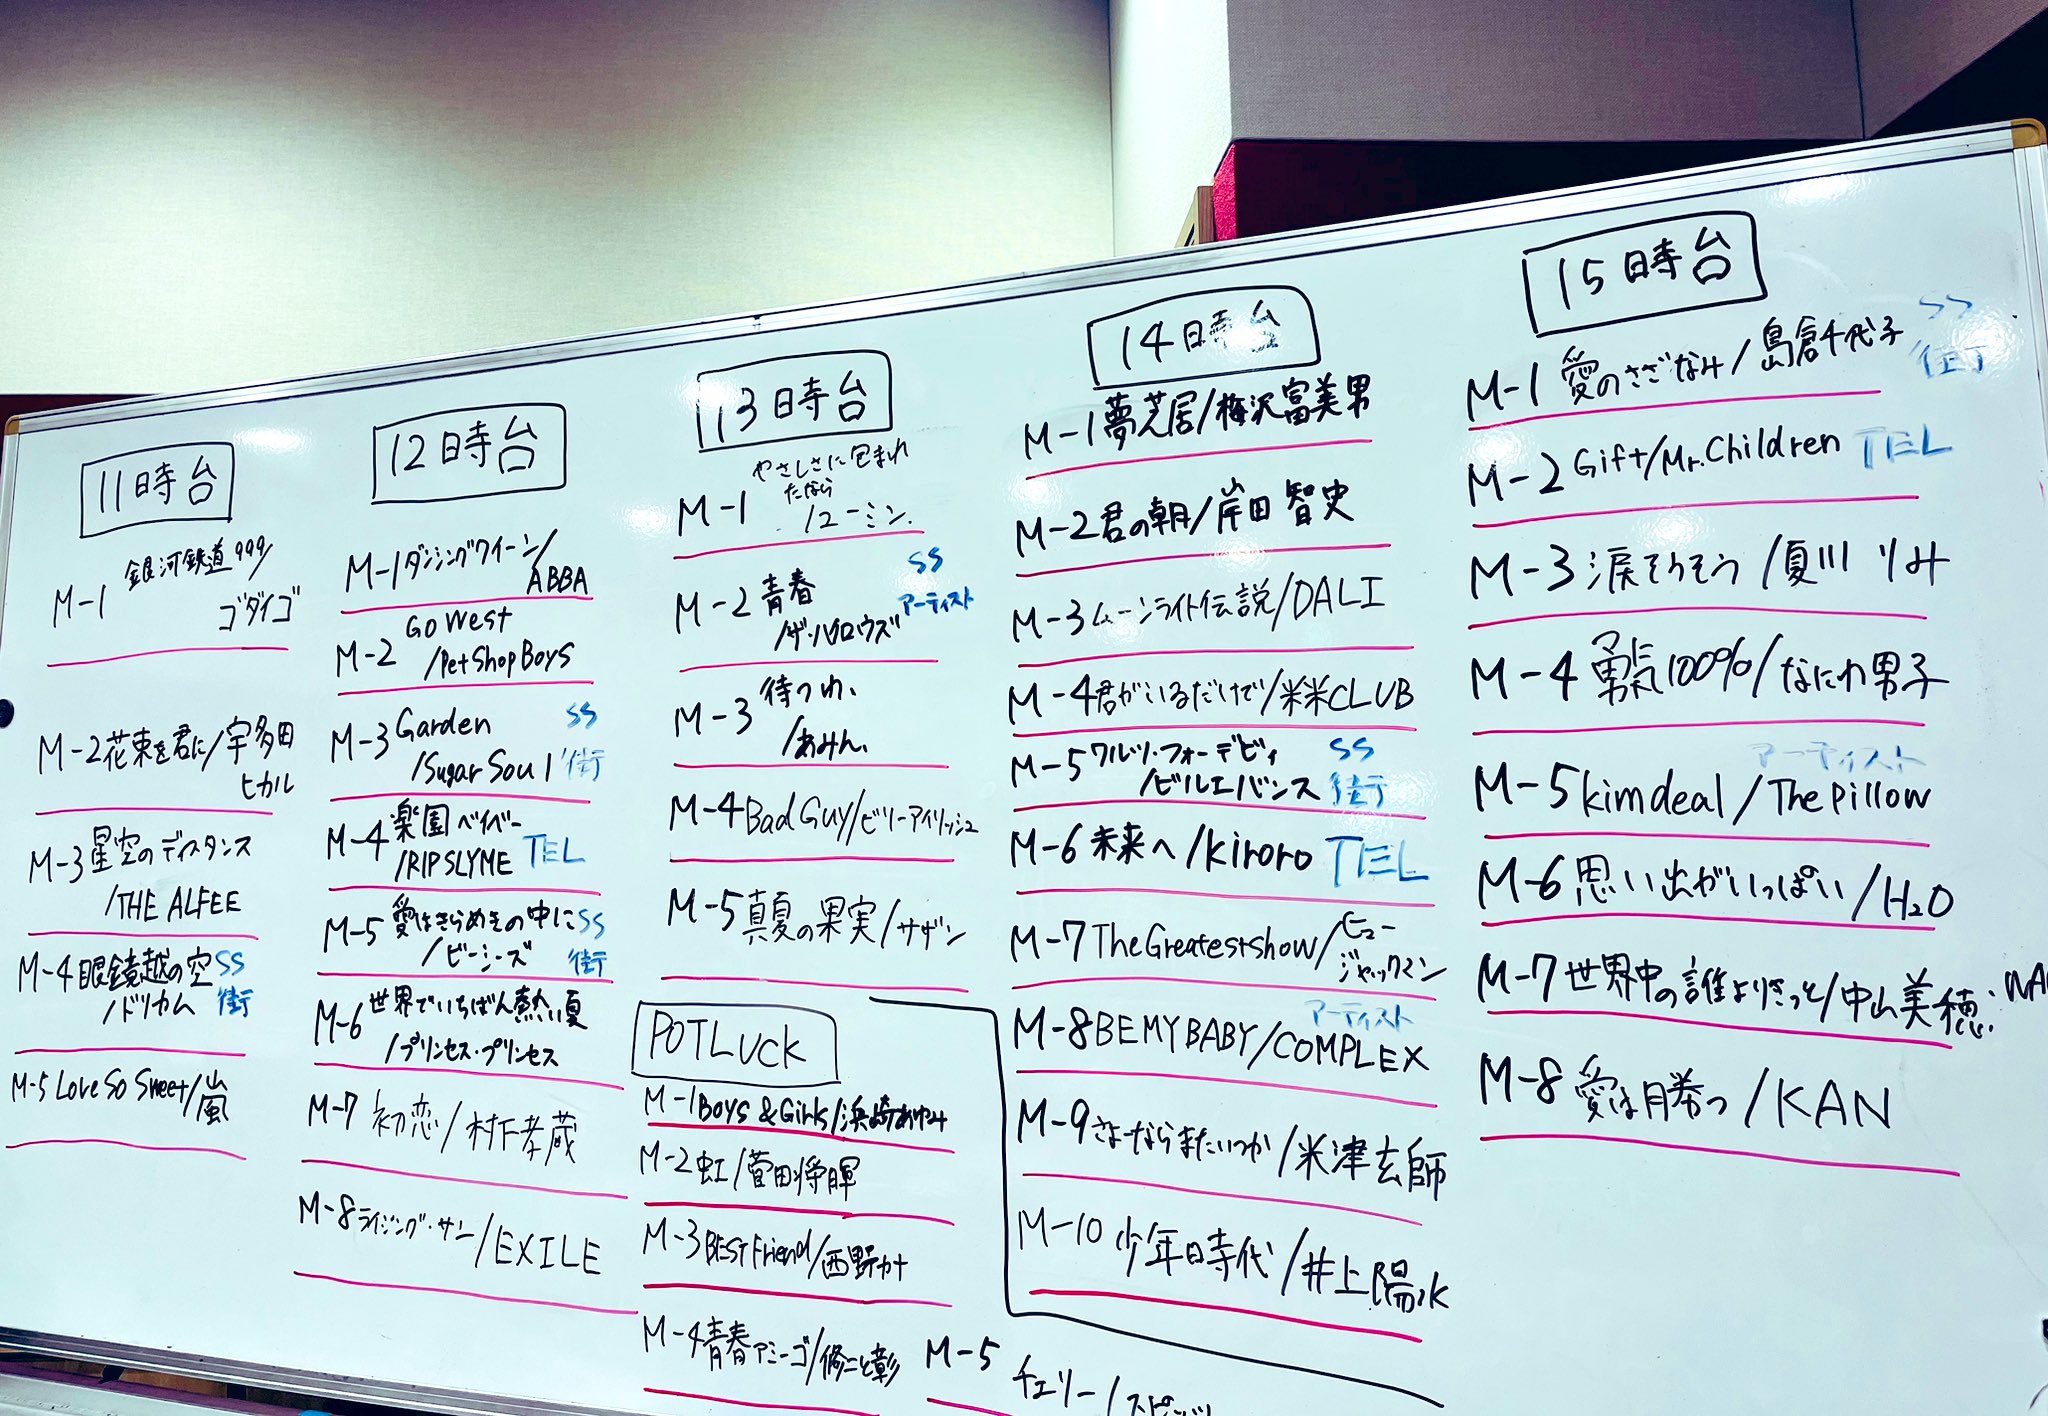 11時台
M-1 銀河鉄道999/
ゴダイゴ
M-2 花束を君に/宇多田
ヒカル
M-3 星空のディスタンス
/THE ALFEE
M-4 眼鏡越の空 SS
/ドリカム 街
M-5 Love So Sweet/嵐
12時台
M-1 ダンシングクイーン/
ABBA
M-2 Go West
/Pet Shop Boys
M-3 Garden SS
/Sugar Soul 街
M-4 楽園ベイベー
/RIPSLYME TEL
M-5 愛はきらめきの中に SS
/ビージーズ 街
M-6 世界でいちばん熱い夏
/プリンセス・プリンセス
M-7 初恋/村下孝蔵
M-8 ライジング・サン/EXILE
13時台
M-1 やさしさに包まれ
たなら
/ユーミン.
M-2 青春 SS
/ザ・ハイロウズ アーティスト
M-3 待つわ
/あみん
M-4 Bad Guy/ビリーアイリッシュ
M-5 真夏の果実/サザン
POTLUCK
M-1 Boys & Girls/浜崎あゆみ
M-2 虹/菅田将暉
M-3 BEST Friend/西野カナ
M-4 青春アミーゴ/修二と彰
M-5 チェリー/スピッツ
14時台
M-1 夢芝居/梅沢富美男
M-2 君の朝/岸田智史
M-3 ムーンライト伝説/DALI
M-4 君がいるだけで/米米CLUB
M-5 ワルツ・フォー・デビィ SS
/ビルエバンス 街
M-6 未来へ/kiroro TEL
M-7 The Greatest show/ヒュー
ジャックマン
アーティスト
M-8 BE MY BABY/COMPLEX
M-9 さよーならまたいつか/米津玄師
M-10 少年時代/井上陽水
15時台
M-1 愛のさざなみ/島倉千代子 SS
街
M-2 Gift/Mr.Children TEL
M-3 涙そうそう/夏川りみ
M-4 勇気100%/なにわ男子
アーティスト
M-5 kim deal/The Pillow
M-6 思い出がいっぱい/H2O
M-7 世界中の誰よりきっと/中山美穂
M-8 愛は勝つ/KAN